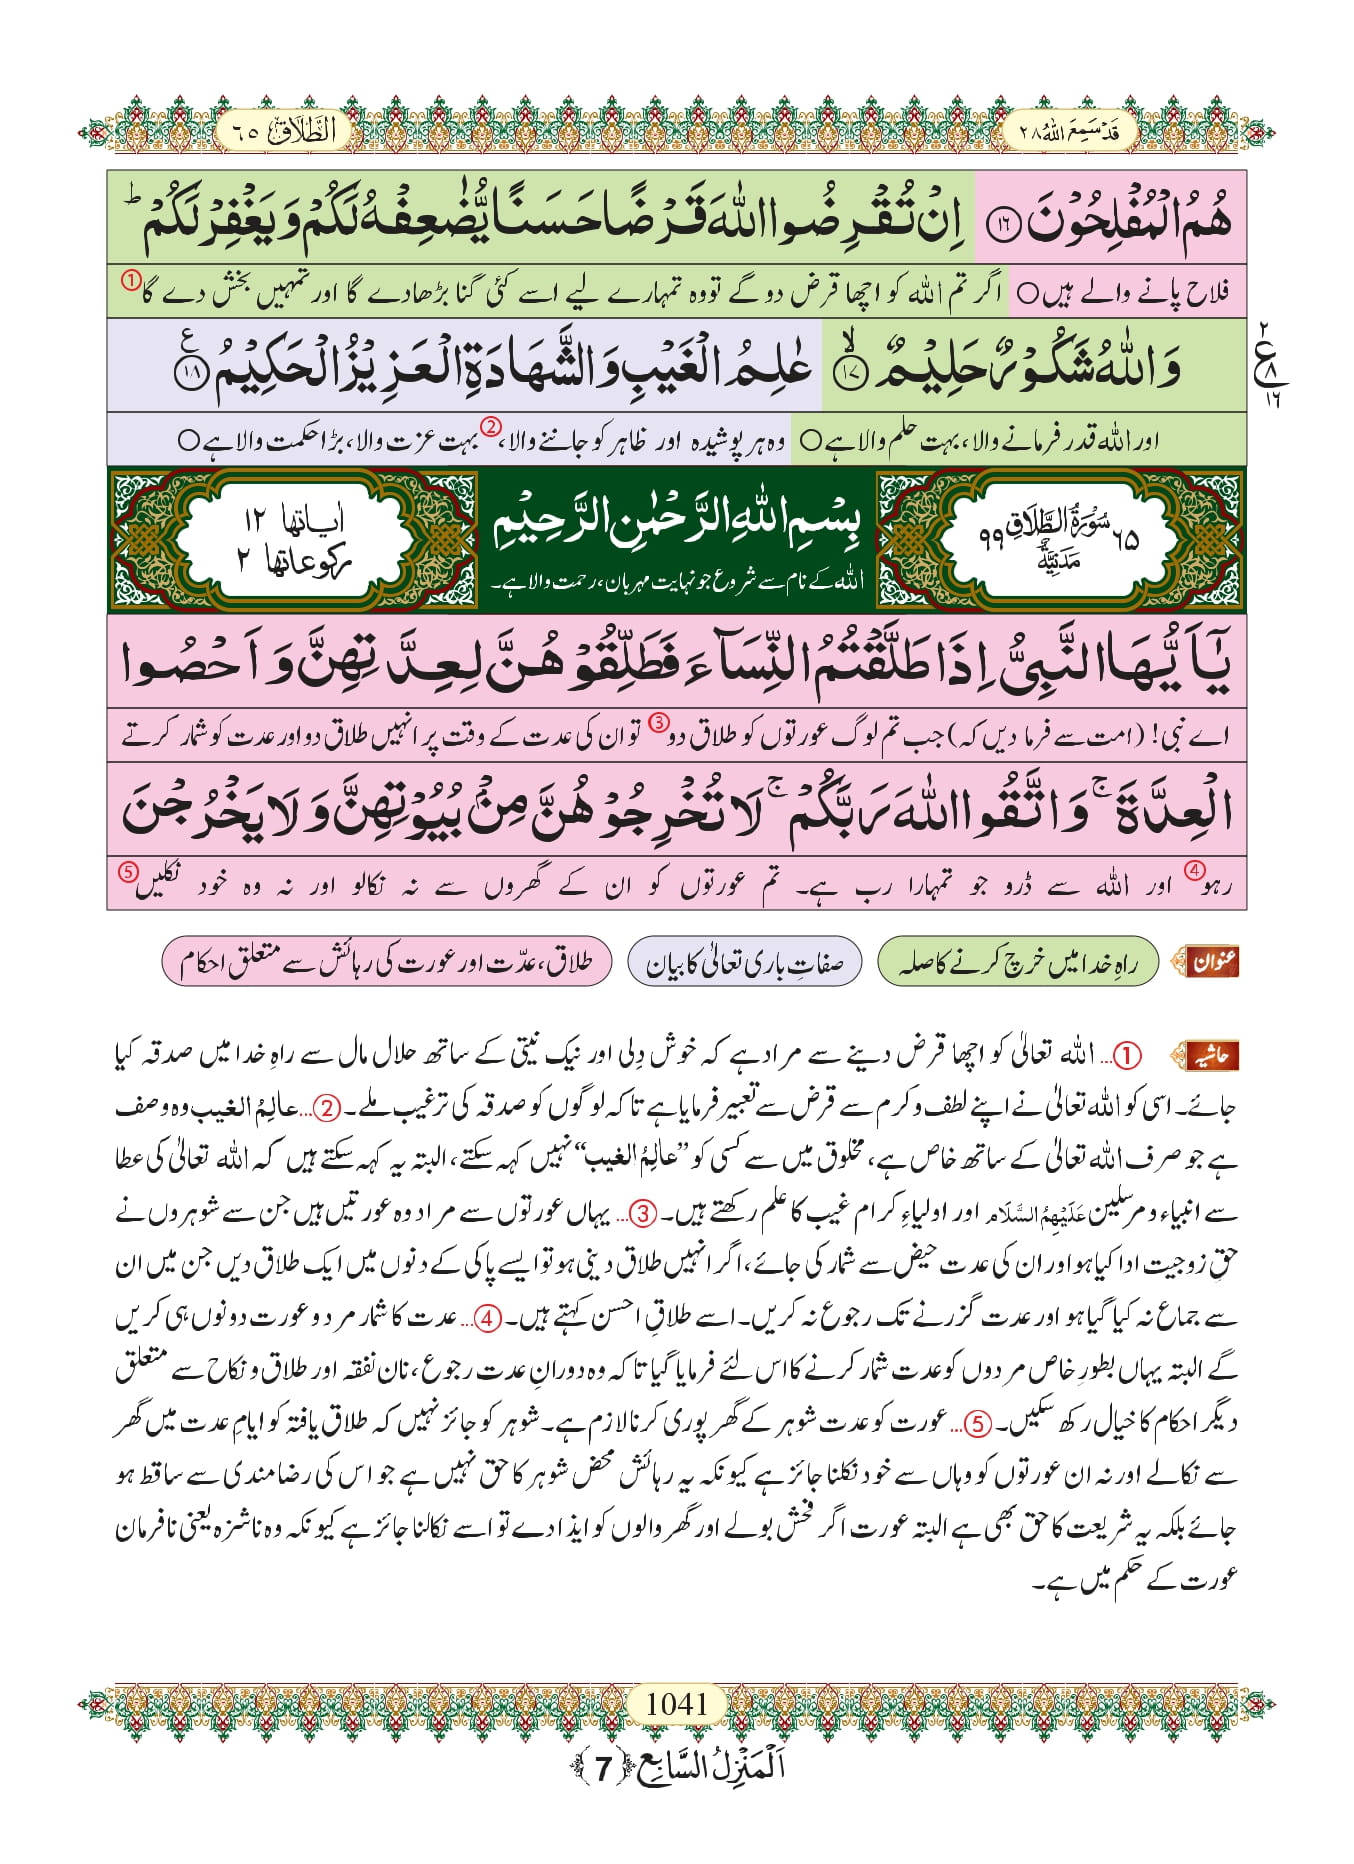 قَدْ سَمِعَ اللہُ ۲۸
الطَّلَاق ۶۵
هُمُ الْمُفْلِحُوْنَ ﴿۱۶﴾ اِنْ تُقْرِضُوا اللّٰهَ قَرْضًا حَسَنًا یُّضٰعِفْهُ لَكُمْ وَ یَغْفِرْ لَكُمْ ؕ
فلاح پانے والے ہیں○ اگر تم اللہ کو اچھا قرض دو گے تو وہ تمہارے لیے اسے کئی گنا بڑھادے گا اور تمہیں بخش دے گا ①
وَ اللّٰهُ شَكُوْرٌ حَلِیْمٌ ﴿۱۷﴾ۙ عٰلِمُ الْغَیْبِ وَ الشَّهَادَةِ الْعَزِیْزُ الْحَكِیْمُ ﴿۱۸﴾ ع
۲ ع ۸ ۱۶
اور اللہ قدر فرمانے والا، بہت حلم والا ہے○ وہ ہر پوشیدہ اور ظاہر کو جاننے والا، ② بہت عزت والا، بڑا حکمت والا ہے○
۶۵ سُوْرَةُ الطَّلَاقِ مَدَنِیَّةٌ ۹۹
بِسْمِ اللّٰهِ الرَّحْمٰنِ الرَّحِیْمِ
اللہ کے نام سے شروع جو نہایت مہربان، رحمت والا ہے۔
اٰیاتها ۱۲
رکوعاتها ۲
یٰۤاَیُّهَا النَّبِیُّ اِذَا طَلَّقْتُمُ النِّسَآءَ فَطَلِّقُوْهُنَّ لِعِدَّتِهِنَّ وَ اَحْصُوا
اے نبی! (امت سے فرما دیں کہ) جب تم لوگ عورتوں کو طلاق دو ③ تو ان کی عدت کے وقت پر انہیں طلاق دو اور عدت کو شمار کرتے
الْعِدَّةَ ۚ وَ اتَّقُوا اللّٰهَ رَبَّكُمْ ۚ لَا تُخْرِجُوْهُنَّ مِنْۢ بُیُوْتِهِنَّ وَ لَا یَخْرُجْنَ
رہو ④ اور اللہ سے ڈرو جو تمہارا رب ہے۔ تم عورتوں کو ان کے گھروں سے نہ نکالو اور نہ وہ خود نکلیں ⑤
عنوان راہِ خدا میں خرچ کرنے کا صلہ صفاتِ باری تعالیٰ کا بیان طلاق، عدّت اور عورت کی رہائش سے متعلق احکام
حاشیہ ①... اللہ تعالیٰ کو اچھا قرض دینے سے مراد ہے کہ خوش دِلی اور نیک نیتی کے ساتھ حلال مال سے راہِ خدا میں صدقہ کیا
جائے۔ اسی کو اللہ تعالیٰ نے اپنے لطف و کرم سے قرض سے تعبیر فرمایا ہے تاکہ لوگوں کو صدقہ کی ترغیب ملے۔ ②... عالِمُ الغیب وہ وصف
ہے جو صرف اللہ تعالیٰ کے ساتھ خاص ہے، مخلوق میں سے کسی کو ”عالِمُ الغیب“ نہیں کہہ سکتے، البتہ یہ کہہ سکتے ہیں کہ اللہ تعالیٰ کی عطا
سے انبیاء و مرسلین عَلَیْہِمُ السَّلَام اور اولیاءِ کرام غیب کا علم رکھتے ہیں۔ ③... یہاں عورتوں سے مراد وہ عورتیں ہیں جن سے شوہروں نے
حقِ زوجیت ادا کیا ہو اور ان کی عدت حیض سے شمار کی جائے، اگر انہیں طلاق دینی ہو تو ایسے پاکی کے دنوں میں ایک طلاق دیں جن میں ان
سے جماع نہ کیا گیا ہو اور عدت گزرنے تک رجوع نہ کریں۔ اسے طلاقِ احسن کہتے ہیں۔ ④... عدت کا شمار مرد و عورت دونوں ہی کریں
گے البتہ یہاں بطورِ خاص مردوں کو عدت شمار کرنے کا اس لئے فرمایا گیا تاکہ وہ دورانِ عدت رجوع، نان نفقہ اور طلاق و نکاح سے متعلق
دیگر احکام کا خیال رکھ سکیں۔ ⑤... عورت کو عدت شوہر کے گھر پوری کرنا لازم ہے۔ شوہر کو جائز نہیں کہ طلاق یافتہ کو ایامِ عدت میں گھر
سے نکالے اور نہ ان عورتوں کو وہاں سے خود نکلنا جائز ہے کیونکہ یہ رہائش محض شوہر کا حق نہیں ہے جو اس کی رضامندی سے ساقط ہو
جائے بلکہ یہ شریعت کا حق بھی ہے البتہ عورت اگر فحش بولے اور گھر والوں کو ایذا دے تو اسے نکالنا جائز ہے کیونکہ وہ ناشزہ یعنی نافرمان
عورت کے حکم میں ہے۔
1041
اَلْمَنْزِلُ السَّابِع ﴿7﴾